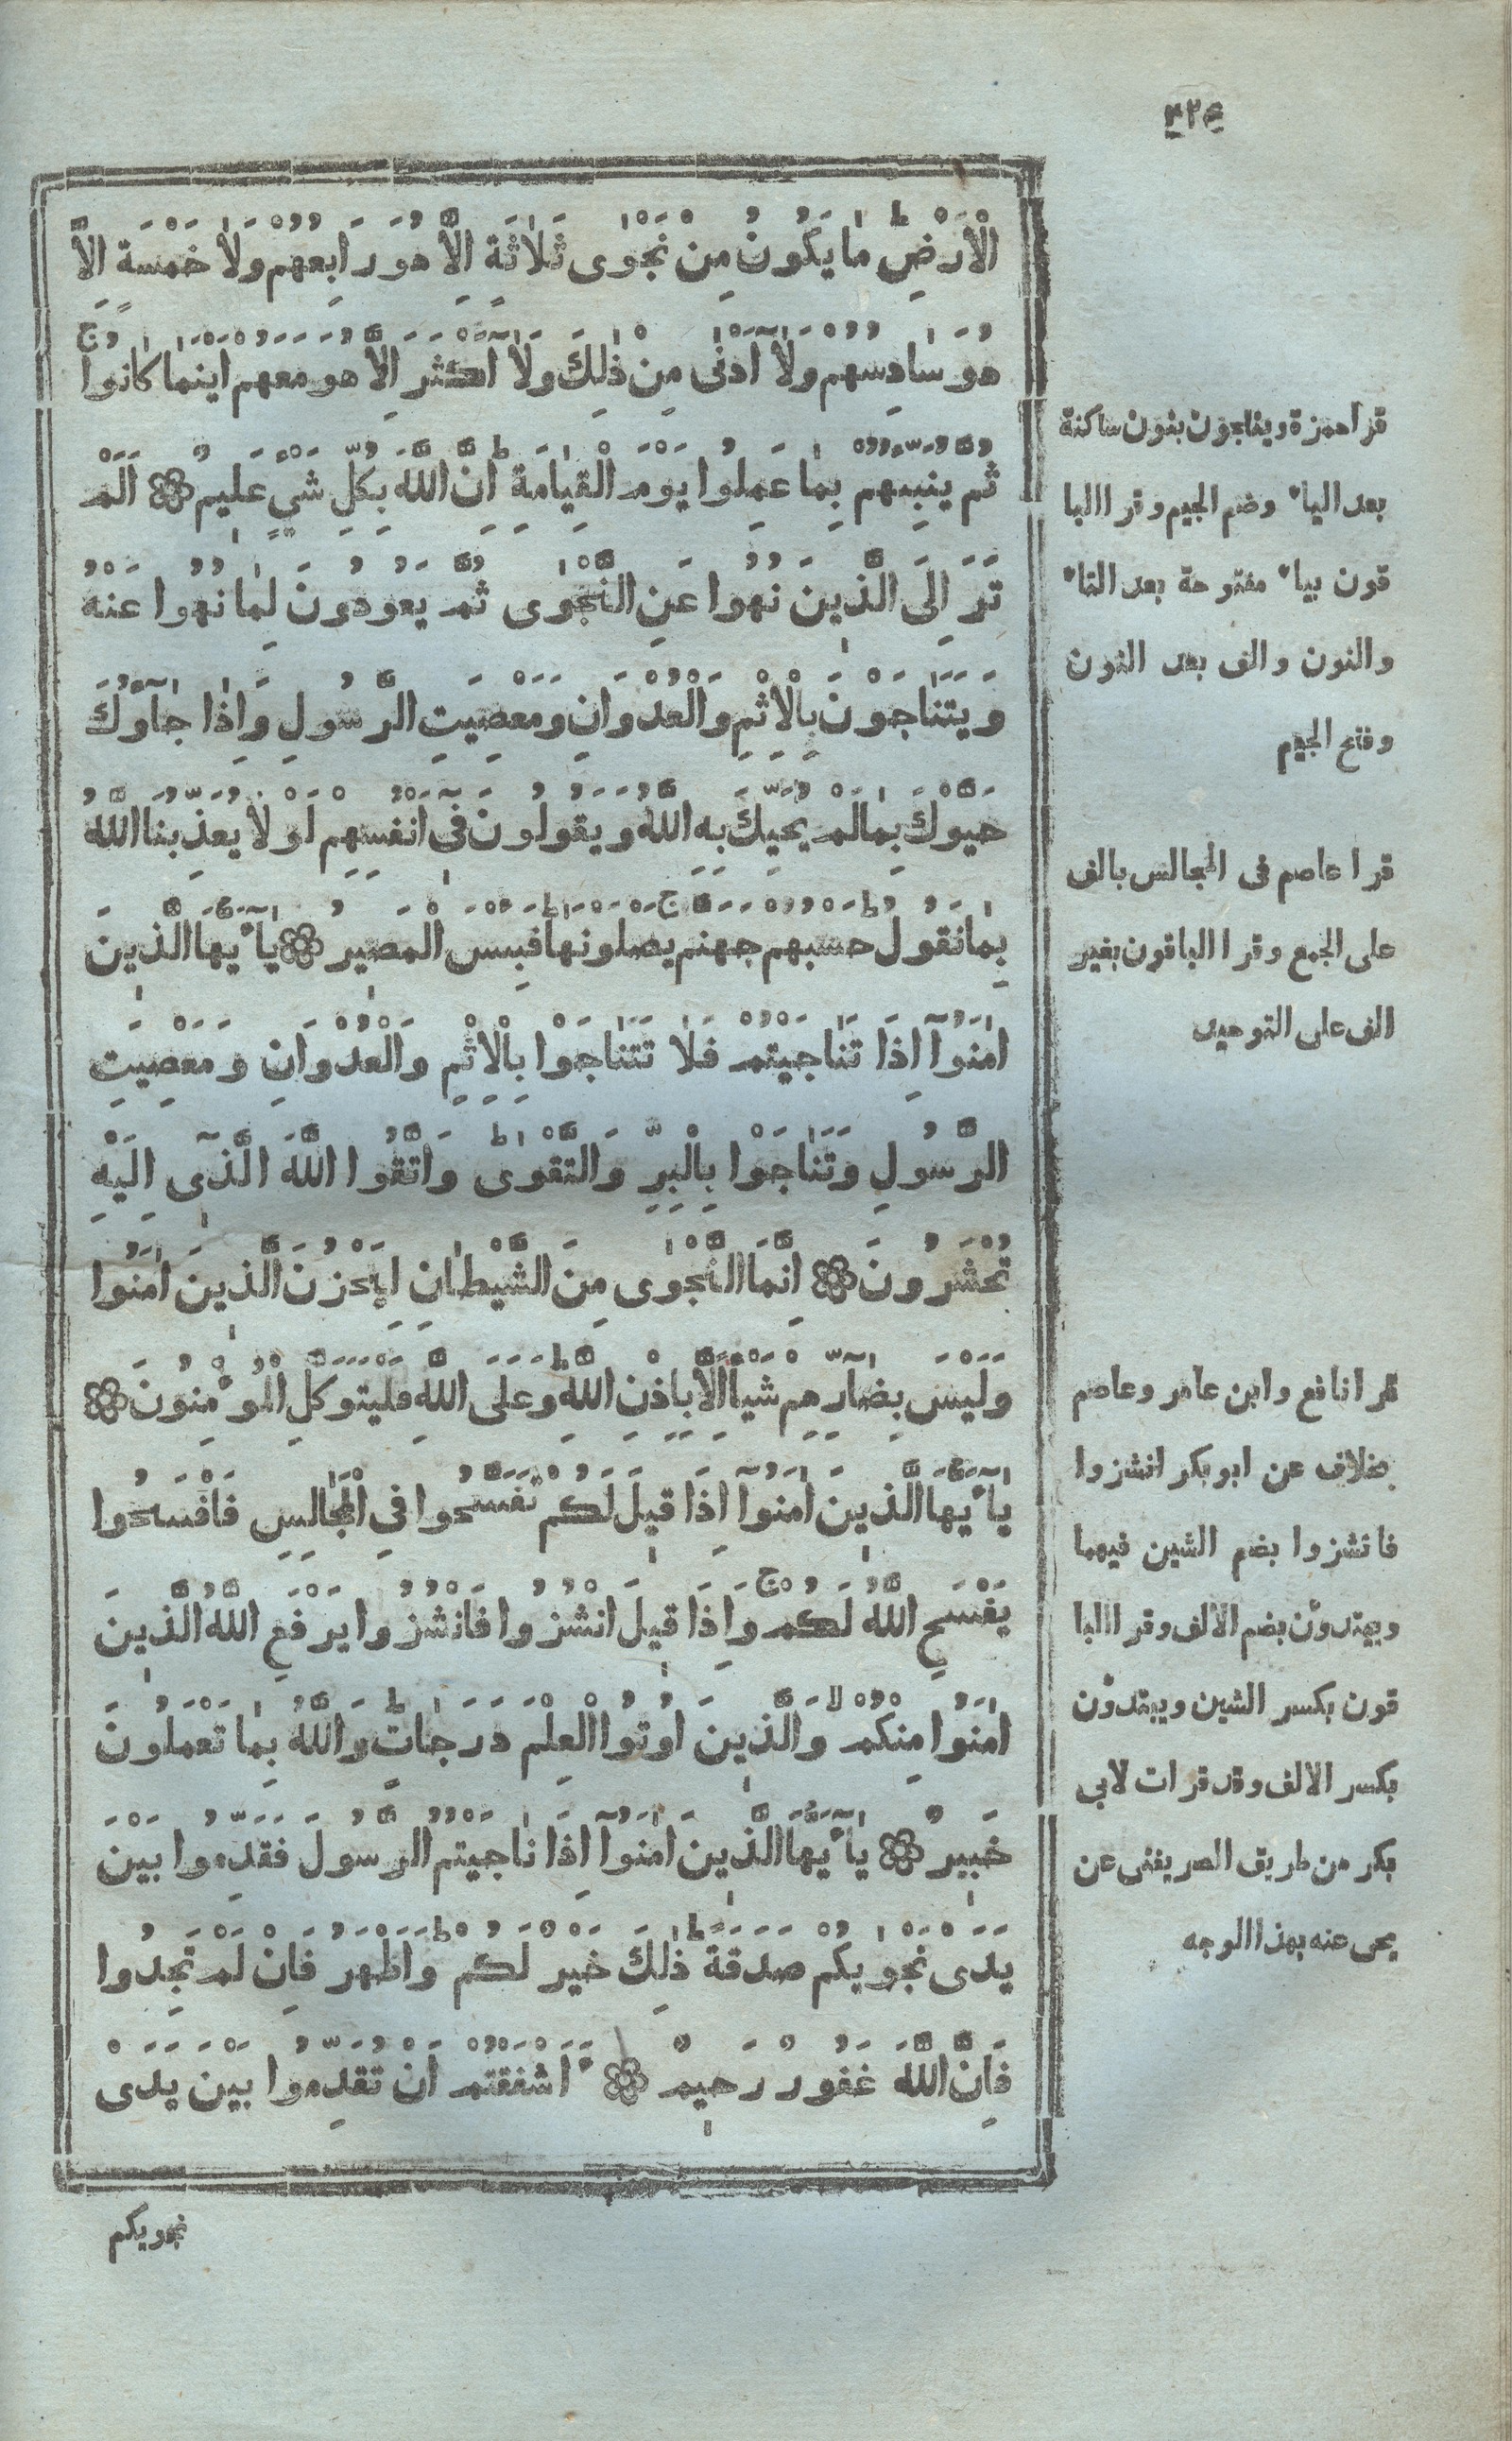 ٤٢٤
الْاَرْضِ ط مَا يَكُونُ مِنْ نَجْوٰى ثَلٰثَةٍ اِلَّا هُوَ رَابِعُهُمْ وَلَا خَمْسَةٍ اِلَّا
هُوَ سَادِسُهُمْ وَلَآ اَدْنٰى مِنْ ذٰلِكَ وَلَآ اَكْثَرَ اِلَّا هُوَ مَعَهُمْ اَيْنَمَا كَانُوا ج
ثُمَّ يُنَبِّئُهُمْ بِمَا عَمِلُوا يَوْمَ الْقِيَامَةِ ط اِنَّ اللّٰهَ بِكُلِّ شَيْءٍ عَلِيمٌ ۞ اَلَمْ
تَرَ اِلَى الَّذِينَ نُهُوا عَنِ النَّجْوٰى ثُمَّ يَعُودُونَ لِمَا نُهُوا عَنْهُ
وَيَتَنَاجَوْنَ بِالْاِثْمِ وَالْعُدْوَانِ وَمَعْصِيَتِ الرَّسُولِ وَاِذَا جَآؤُكَ
حَيَّوْكَ بِمَا لَمْ يُحَيِّكَ بِهِ اللّٰهُ وَيَقُولُونَ فِىٓ اَنْفُسِهِمْ لَوْلَا يُعَذِّبُنَا اللّٰهُ
بِمَا نَقُولُ ط حَسْبُهُمْ جَهَنَّمُ ج يَصْلَوْنَهَا ط فَبِئْسَ الْمَصِيرُ ۞ يَآءَيُّهَا الَّذِينَ
اٰمَنُوٓا اِذَا تَنَاجَيْتُمْ فَلَا تَتَنَاجَوْا بِالْاِثْمِ وَالْعُدْوَانِ وَمَعْصِيَتِ
الرَّسُولِ وَتَنَاجَوْا بِالْبِرِّ وَالتَّقْوٰى ط وَاتَّقُوا اللّٰهَ الَّذِىٓ اِلَيْهِ
تُحْشَرُونَ ۞ اِنَّمَا النَّجْوٰى مِنَ الشَّيْطَانِ لِيَحْزُنَ الَّذِينَ اٰمَنُوا
وَلَيْسَ بِضَآرِّهِمْ شَيْـًٔا اِلَّا بِاِذْنِ اللّٰهِ ط وَعَلَى اللّٰهِ فَلْيَتَوَكَّلِ الْمُؤْمِنُونَ ۞
يَآءَيُّهَا الَّذِينَ اٰمَنُوٓا اِذَا قِيلَ لَكُمْ تَفَسَّحُوا فِى الْمَجَالِسِ فَافْسَحُوا
يَفْسَحِ اللّٰهُ لَكُمْ ج وَاِذَا قِيلَ انْشُزُوا فَانْشُزُوا يَرْفَعِ اللّٰهُ الَّذِينَ
اٰمَنُوا مِنْكُمْ لا وَالَّذِينَ اُوتُوا الْعِلْمَ دَرَجَاتٍ ط وَاللّٰهُ بِمَا تَعْمَلُونَ
خَبِيرٌ ۞ يَآءَيُّهَا الَّذِينَ اٰمَنُوٓا اِذَا نَاجَيْتُمُ الرَّسُولَ فَقَدِّمُوا بَيْنَ
يَدَىْ نَجْوٰيكُمْ صَدَقَةً ط ذٰلِكَ خَيْرٌ لَكُمْ وَاَطْهَرُ ط فَاِنْ لَمْ تَجِدُوا
فَاِنَّ اللّٰهَ غَفُورٌ رَحِيمٌ ۞ ءَاَشْفَقْتُمْ اَنْ تُقَدِّمُوا بَيْنَ يَدَىْ
نجويكم
قرا حمزة وينتجون بنون ساكنة
بعد الياء وضم الجيم وقرا البا
قون بياء مفتوحة بعد التاء
والنون والف بعد النون
وفتح الجيم
قرا عاصم فى المجالس بالف
على الجمع وقرا الباقون بغير
الف على التوحيد
قرا نافع وابن عامر وعاصم
بخلاف عن ابو بكر انشزوا
فانشزوا بضم الشين فيهما
ويبتدؤن بضم الالف وقرا البا
قون بكسر الشين ويبتدؤن
بكسر الالف وقد قرات لابى
بكر من طريق الصريفنى عن
يحى عنه بهذا الوجه